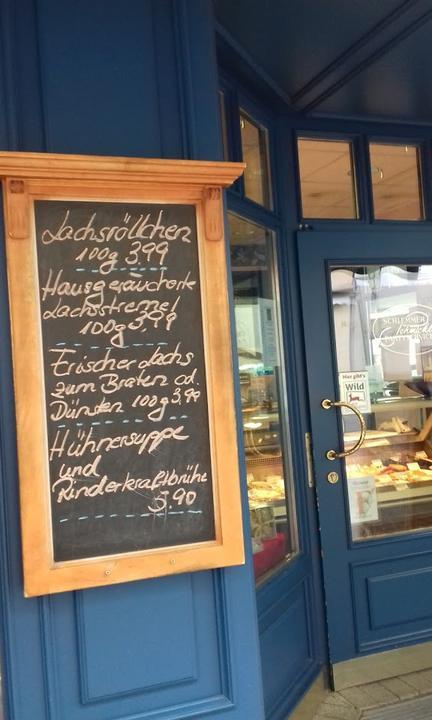 Lachsröllchen
100g 3,99
Hausgeräucherte
Lachsstremel
100g 3,99
Frischer Lachs
zum Braten od.
Dünsten 100g 3,99
Hühnersuppe
und
Rinderkraftbrühe
5.90
SCHLEMMER
Hier gibt's
Wild